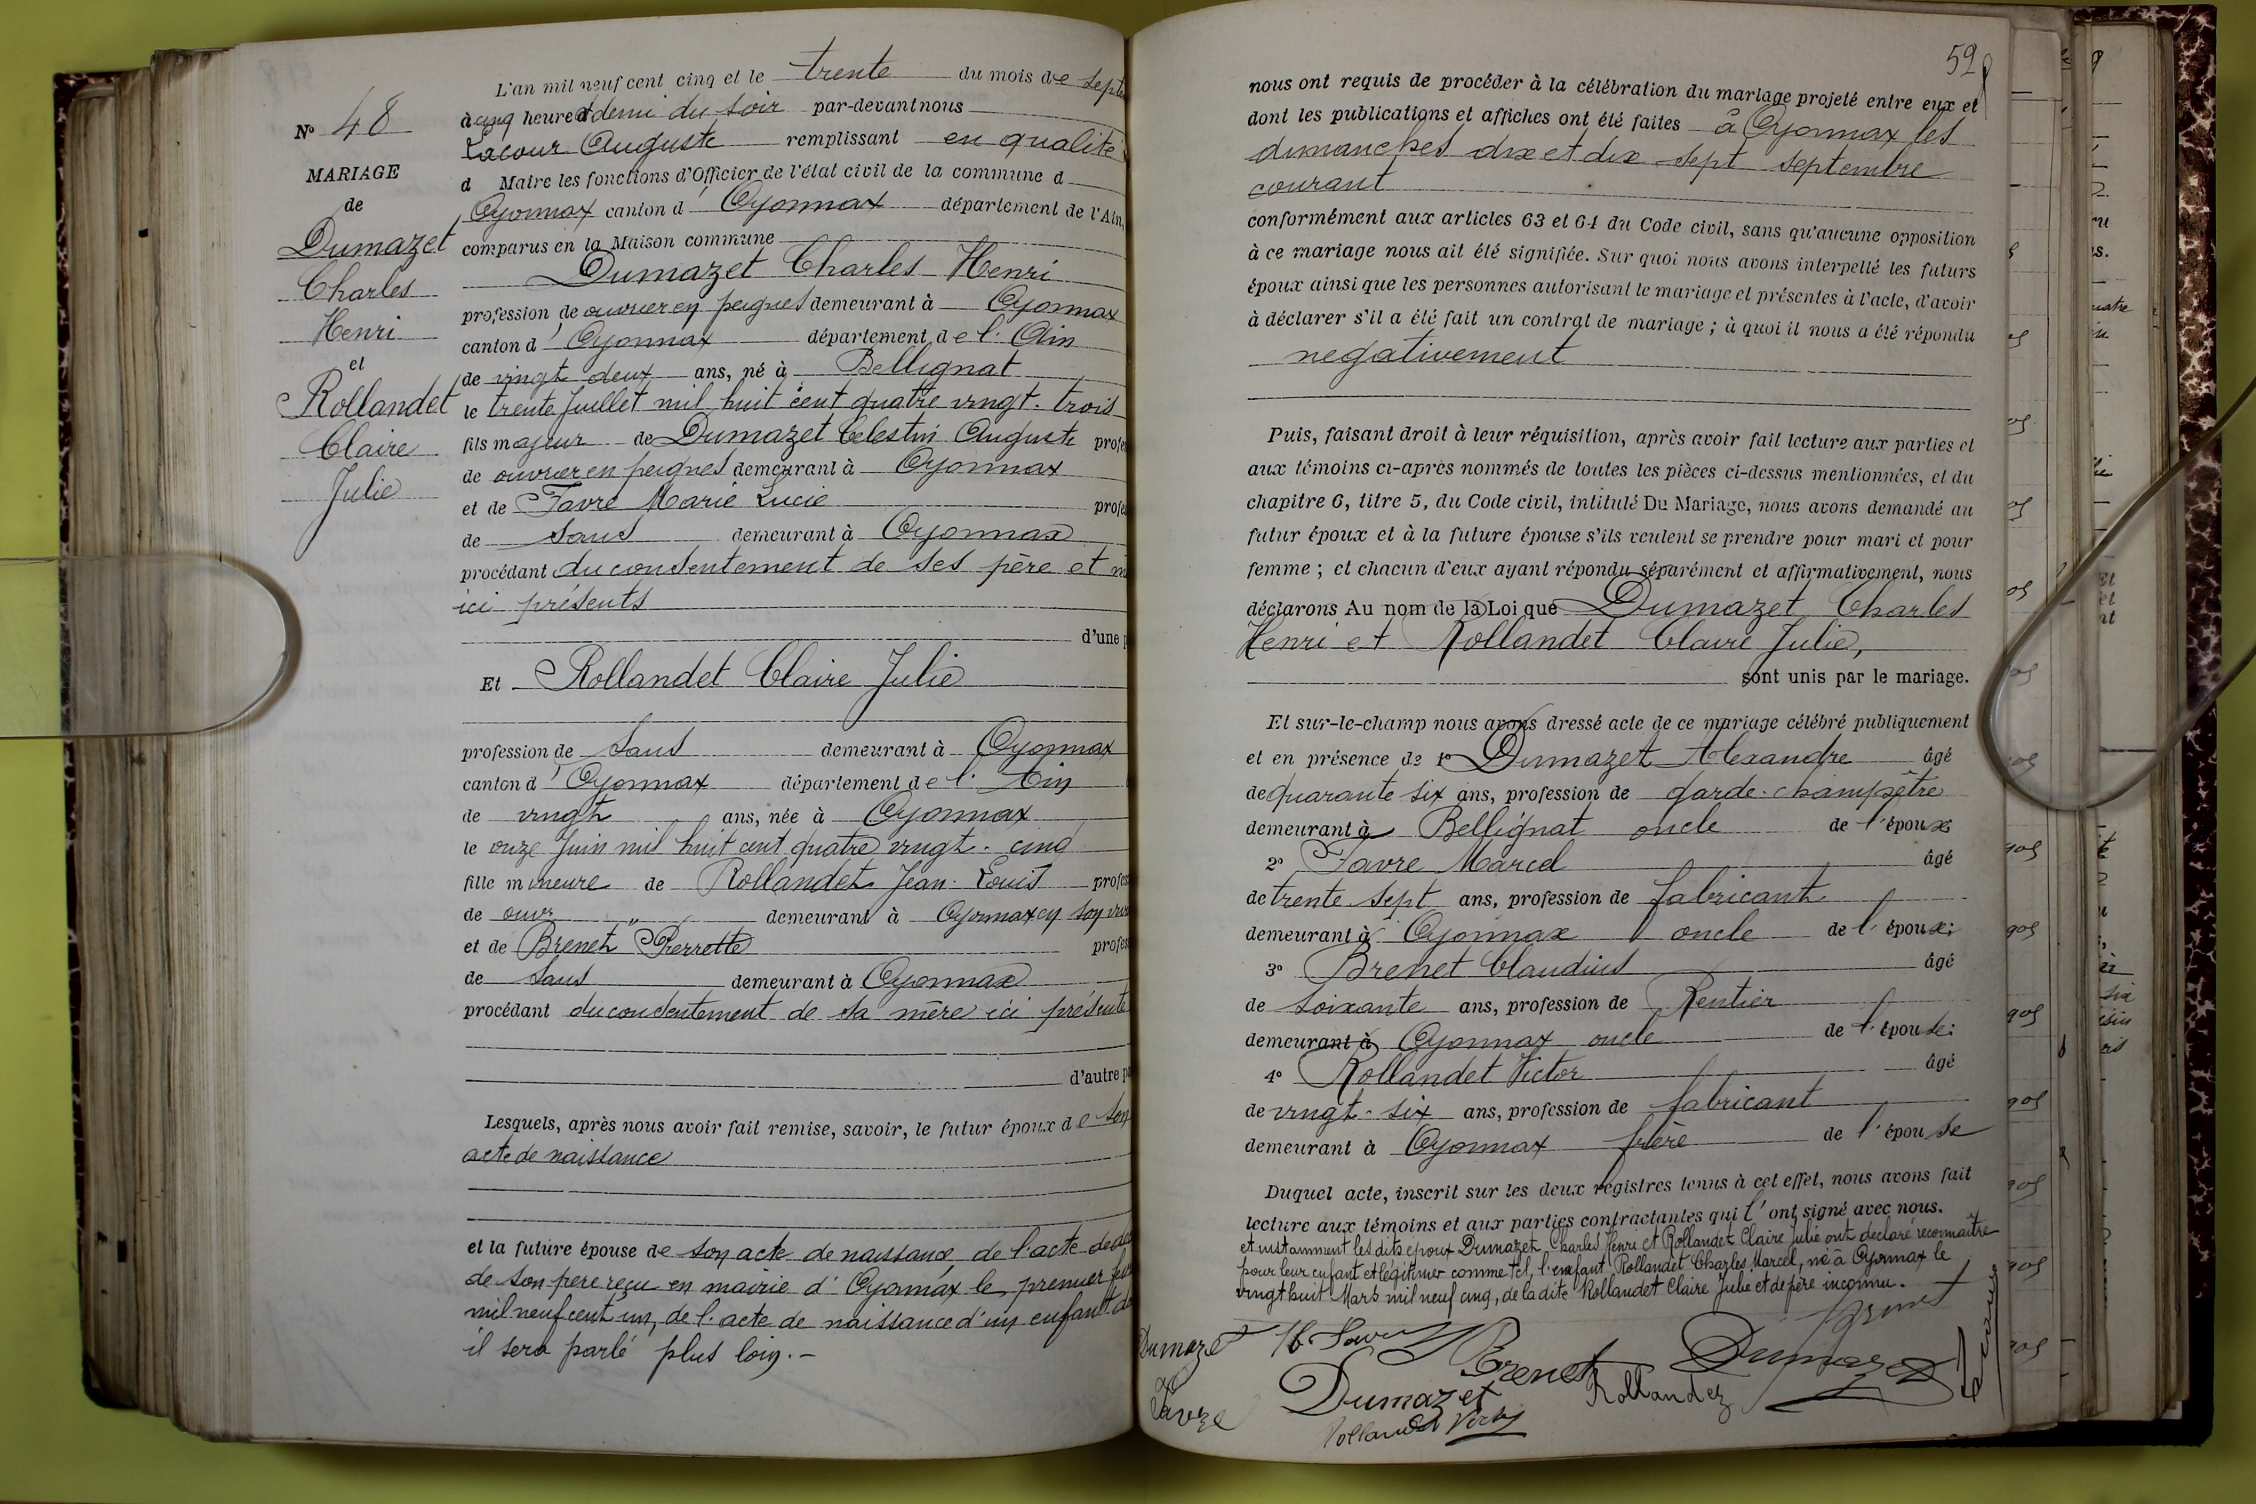 N° 48
MARIAGE
de
Dumazet
Charles
Henri
et
Rollandet
Claire
Julie
L'an mil neuf cent cinq et le trente du mois de septe
à cinq heures et demi du soir par-devant nous
Lacour Auguste remplissant en qualité
d Maire les fonctions d'Officier de l'état civil de la commune d
Oyonnax canton d'Oyonnax département de l'Ain,
comparus en la Maison commune
Dumazet Charles Henri
profession de ouvrier en peignes demeurant à Oyonnax
canton d'Oyonnax département de l'Ain
de vingt deux ans, né à Bellignat
le trente Juillet mil huit cent quatre vingt-trois
fils majeur de Dumazet Celestin Auguste profes
de ouvrier en peignes demeurant à Oyonnax
et de Favre Marie Lucie profes
de sans demeurant à Oyonnax
procédant du consentement de ses père et m
ici présents
d'une p
Et Rollandet Claire Julie
profession de sans demeurant à Oyonnax
canton d'Oyonnax département de l'Ain
de vingt ans, née à Oyonnax
le onze Juin mil huit cent quatre vingt-cinq
fille mineure de Rollandet Jean-Louis profes
de ouvr " demeurant à Oyonnax en son viv
et de Brenet Pierrette profes
de sans demeurant à Oyonnax
procédant du consentement de sa mère ici présente
d'autre pa
Lesquels, après nous avoir fait remise, savoir, le futur époux de son
acte de naissance
et la future épouse de son acte de naissance, de l'acte de dé
de son père reçu en mairie d'Oyonnax le premier
mil neuf cent un, de l'acte de naissance d'un enfant do
il sera parlé plus loin.-
59
nous ont requis de procéder à la célébration du mariage projeté entre eux et
dont les publications et affiches ont été faites à Oyonnax les
dimanches dix et dix-sept septembre
courant
conformément aux articles 63 et 64 du Code civil, sans qu'aucune opposition
à ce mariage nous ait été signifiée. Sur quoi nous avons interpellé les futurs
époux ainsi que les personnes autorisant le mariage et présentes à l'acte, d'avoir
à déclarer s'il a été fait un contrat de mariage ; à quoi il nous a été répondu
negativement
Puis, faisant droit à leur réquisition, après avoir fait lecture aux parties et
aux témoins ci-après nommés de toutes les pièces ci-dessus mentionnées, et du
chapitre 6, titre 5, du Code civil, intitulé Du Mariage, nous avons demandé au
futur époux et à la future épouse s'ils veulent se prendre pour mari et pour
femme ; et chacun d'eux ayant répondu séparément et affirmativement, nous
déclarons Au nom de la Loi que Dumazet Charles
Henri et Rollandet Claire Julie,
sont unis par le mariage.
Et sur-le-champ nous avons dressé acte de ce mariage célébré publiquement
et en présence de 1° Dumazet Alexandre âgé
de quarante six ans, profession de garde-champêtre
demeurant à Bellignat oncle de l'époux
2° Favre Marcel âgé
de trente sept ans, profession de fabricant
demeurant à Oyonnax oncle de l'époux;
3° Brenet Claudius âgé
de soixante ans, profession de Rentier
demeurant à Oyonnax oncle de l'épouse;
4° Rollandet Victor âgé
de vingt-six ans, profession de fabricant
demeurant à Oyonnax frère de l'épouse
Duquel acte, inscrit sur les deux registres tenus à cet effet, nous avons fait
lecture aux témoins et aux parties contractantes qui l'ont signé avec nous.
et instamment les dits époux Dumazet Charles Henri et Rollandet Claire Julie ont déclaré reconnaître
pour leur enfant et légitimer comme tel, l'enfant Rollandet Charles Marcel, né à Oyonnax le
vingt huit Mars mil neuf cinq, de la dite Rollandet Claire Julie et de père inconnu.
Brenet
Dumazet Brenet Dumazet
Favre Dumazet Rollandet Lacour
Rollandet Victor